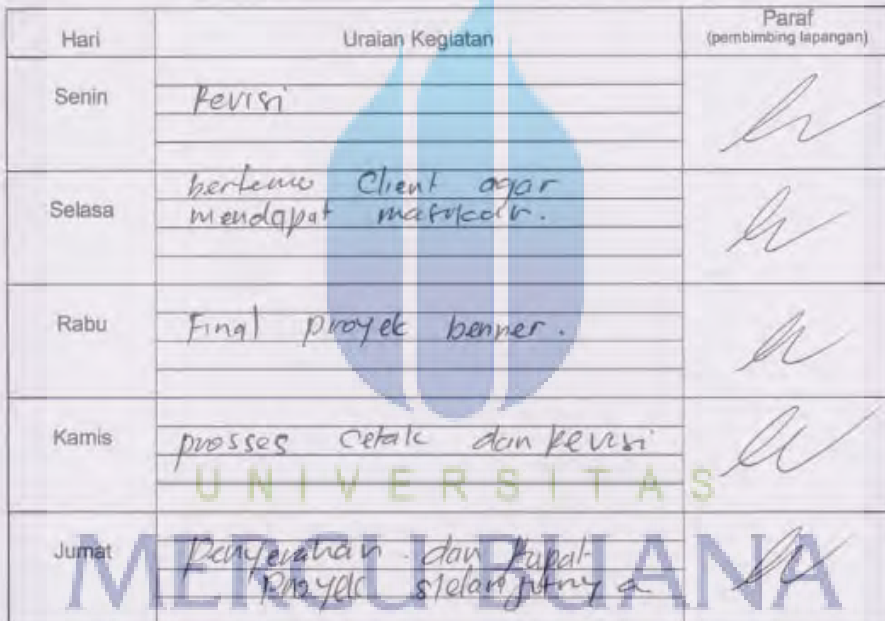 Hari Uraian Kegiatan Paraf
(pembimbing lapangan)
Senin Revisi
Selasa bertemu Client agar
mendapat masukan.
Rabu Final proyek benner.
Kamis prosses Cetak dan Revisi
UNIVERSITAS
Jumat Penyerahan dan Rapat
Proyek
MERCU BUANA